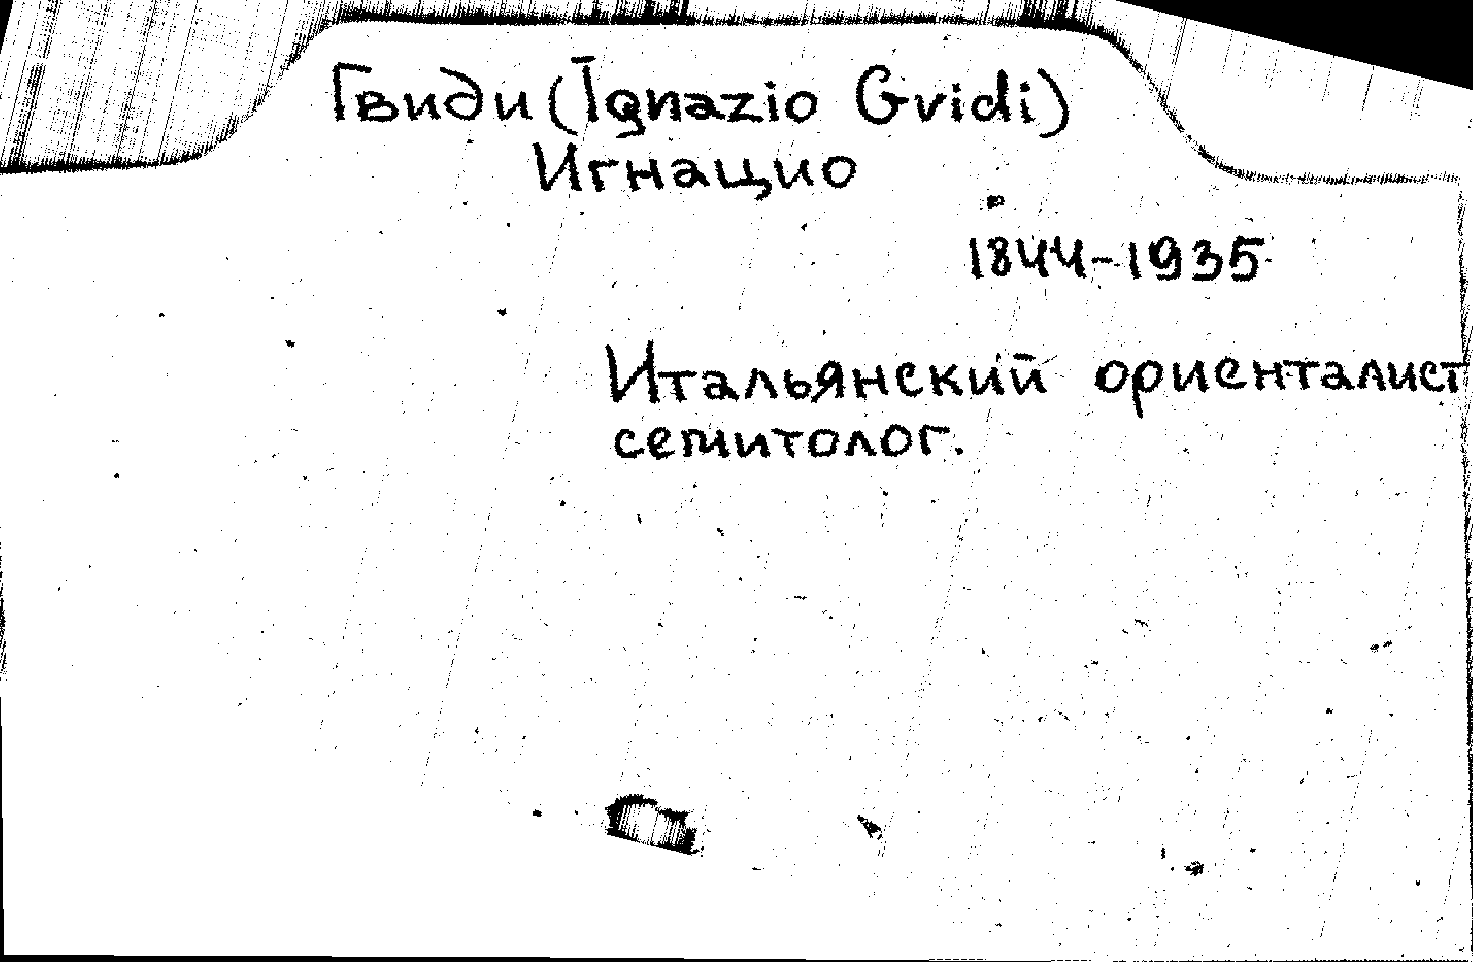 Гвиди (Ignazio Gvidi)
Игнацио
1844-1935
Итальянский ориенталист
семитолог.